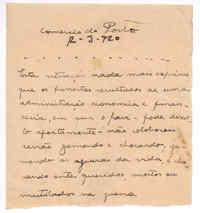 Comercio do Porto
2-3-920
Esta situação nada mais exprime
que os funestos resultados de uma
administração economica e finan-
ceira, em que o paiz - pode dizer-
se afoitamente - não colaborou
senão gemendo e chorando, ge-
mendo as agruras da vida, e cho-
rando entes queridos mortos ou
mutilados na guerra